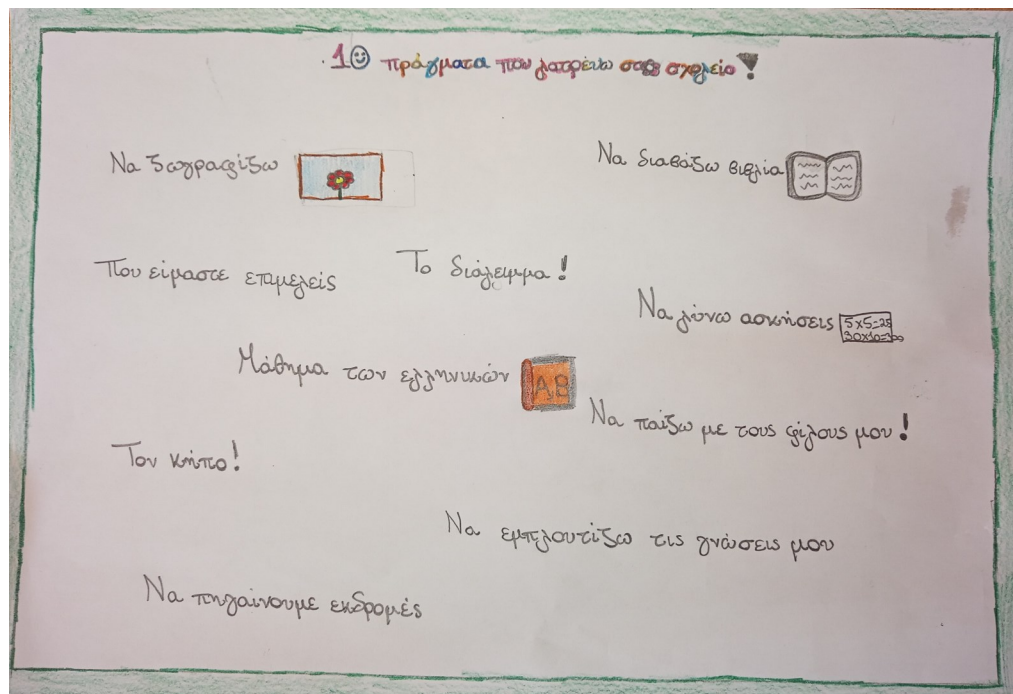 10 πράγματα που λατρεύω στο σχολείο!
Να ζωγραφίζω
Να διαβάζω βιβλία
Που είμαστε επιμελείς
Το διάλειμμα!
Να λύνω ασκήσεις
5x5=25
30x10=300
Μάθημα των ελληνικών
A,B
Να παίζω με τους φίλους μου!
Τον κήπο!
Να εμπλουτίζω τις γνώσεις μου
Να πηγαίνουμε εκδρομές